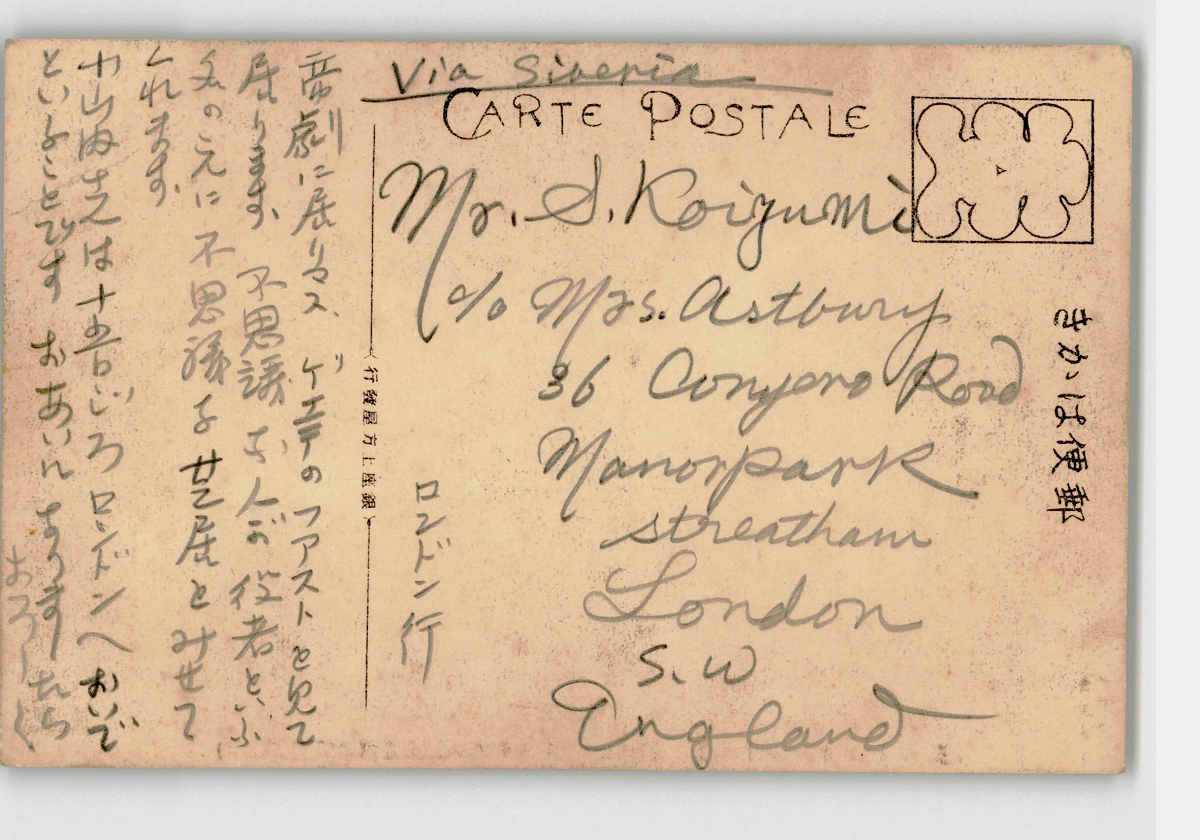 Via Siberia
CARTE POSTALE
Mr. S. Koizumi
c/o Mrs. Astbury
36 Conyero Road
Manorpark
streatham
London
S. W
England
きかは便郵
ロンドン行
行發屋方上座銀
帝劇に居りマス、ゲエテのファストを見て
居ります、不思議な人が役者といふ
名のもとに不思議な芝居をみせて
くれます、
小山内さんは十五日ごろロンドンへおいで
といふことです おあいになりましたら
よろしく